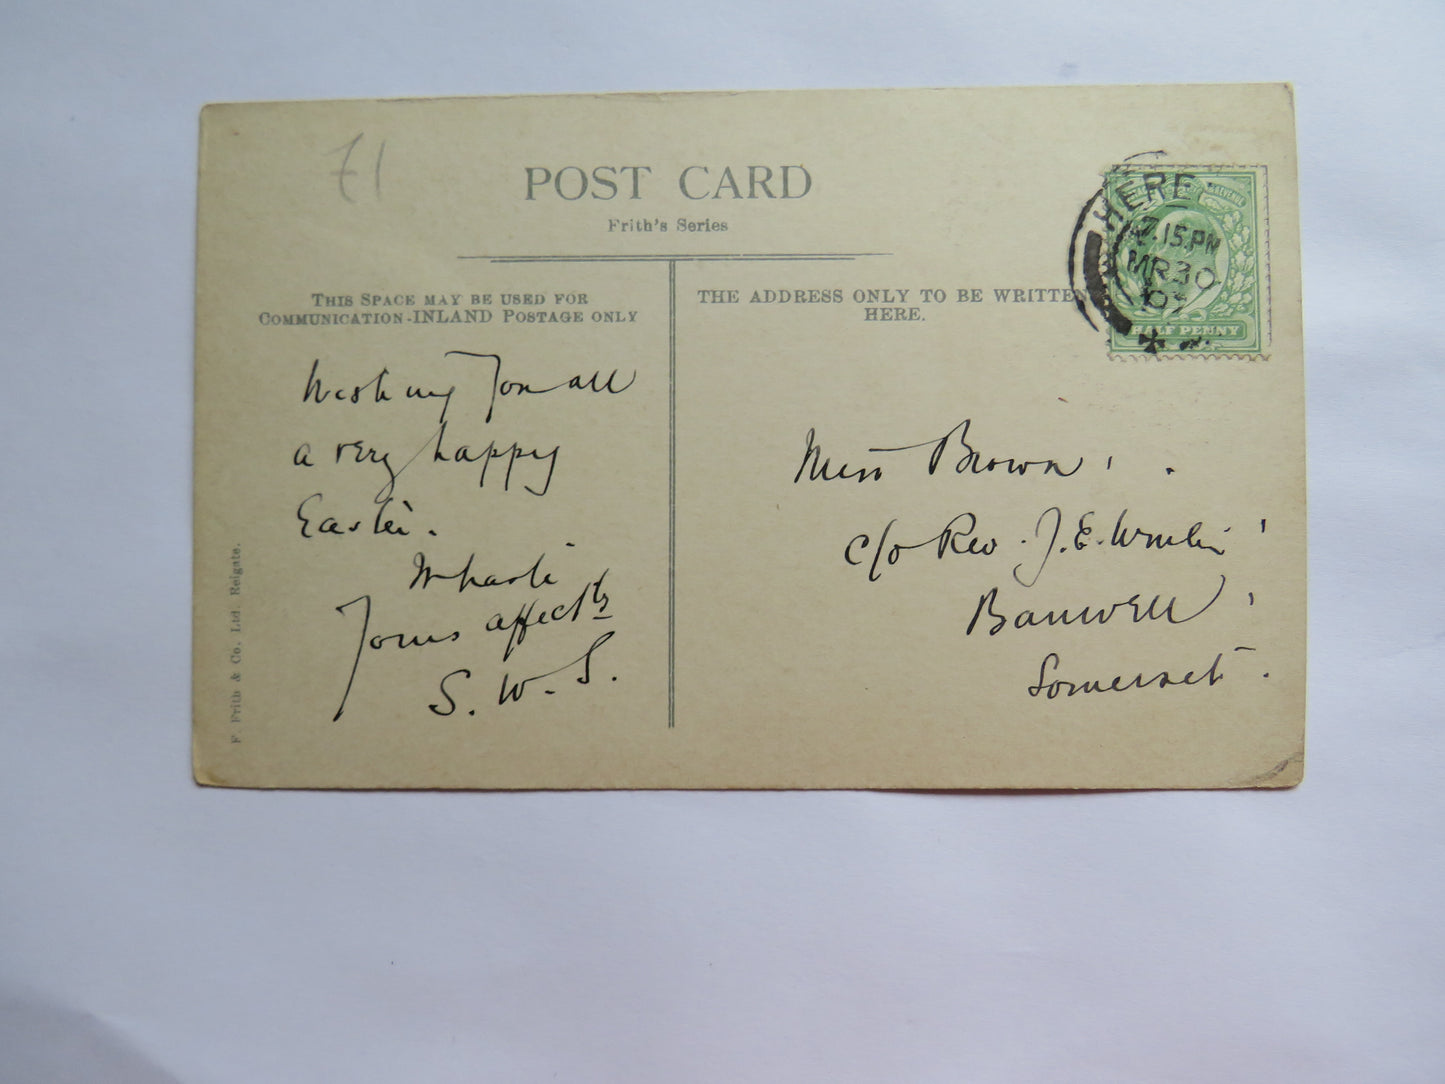 £1
POST CARD
Frith's Series
THIS SPACE MAY BE USED FOR
COMMUNICATION-INLAND POSTAGE ONLY
THE ADDRESS ONLY TO BE WRITTEN
HERE.
HERE
7.15 PM
MR 30
07
HALF PENNY
Wishing you all
a very happy
Easter.
Yours affectly
S. W. S.
Miss Brown,
c/o Rev. J. E.
Banwell,
Somerset.
F. Frith & Co. Ltd. Reigate.